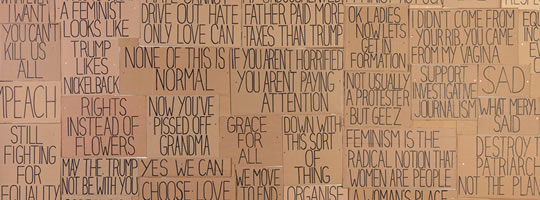 WANT
YOU CAN'T
KILL US
ALL
A FEMINIST
LOOKS LIKE
DRIVE OUT HATE
ONLY LOVE CAN
FATHER PAID MORE
TAXES THAN TRUMP
OK LADIES
NOW LETS
GET IN
FORMATION
I DIDN'T COME FROM
YOUR RIB, YOU CAME
FROM MY VAGINA
TRUMP
LIKES
NICKELBACK
NONE OF THIS IS
NORMAL
IF YOU AREN'T HORRIFIED
YOU ARENT PAYING
ATTENTION
MPEACH
RIGHTS
INSTEAD OF
FLOWERS
NOW YOU'VE
PISSED OFF
GRANDMA
GRACE
FOR
ALL
DOWN WITH
THIS SORT
OF
THING
NOT USUALLY
A PROTESTER
BUT GEEZ
SUPPORT
INVESTIGATIVE
JOURNALISM
SAD
WHAT MERYL
SAID
STILL
FIGHTING
FOR
EQUALITY
MAY THE TRUMP
NOT BE WITH YOU
YES WE CAN
CHOOSE LOVE
WE MOVE
TO END
ORGANISE
FEMINISM IS THE
RADICAL NOTION THAT
WOMEN ARE PEOPLE
A WOMAN'S PLACE
DESTROY T
PATRIARCH
NOT THE PLAN